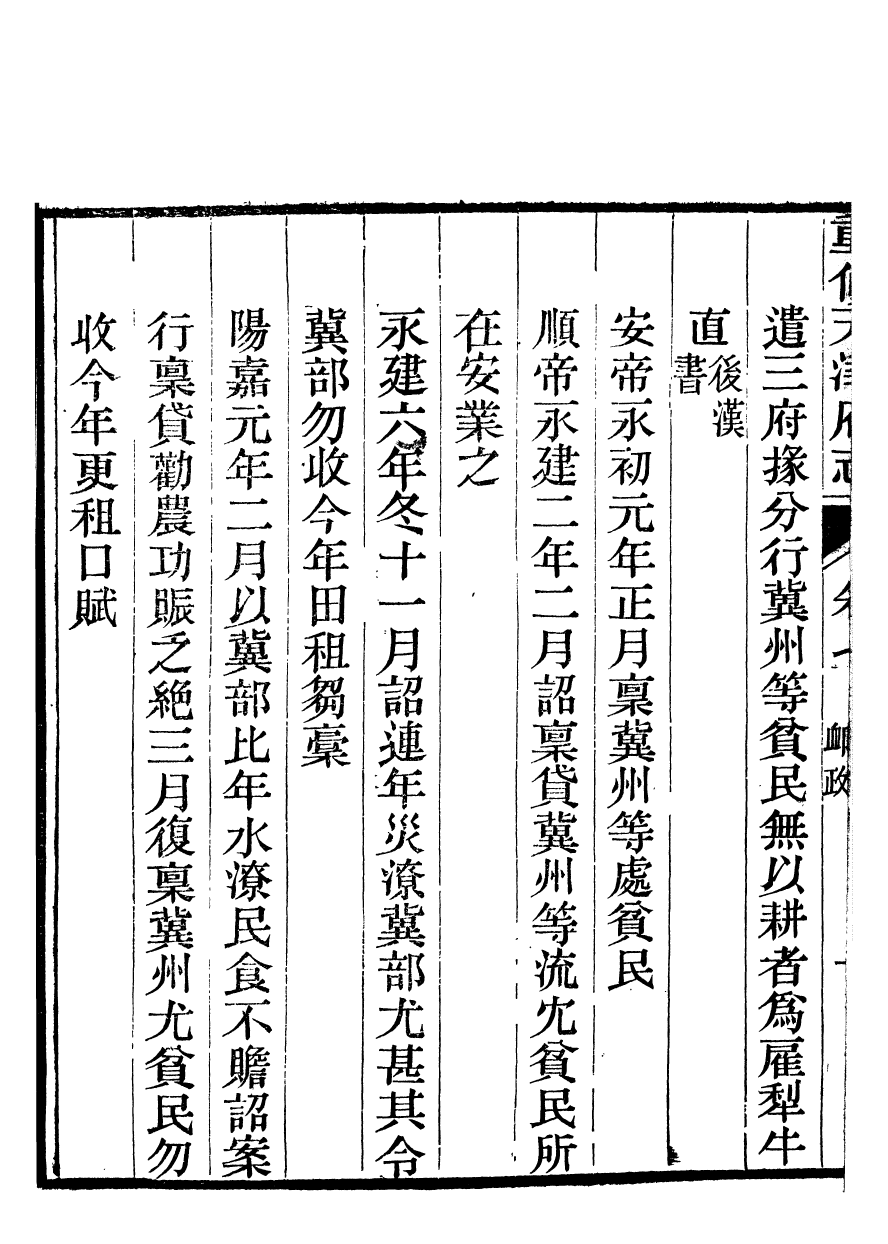 遣三府掾分行冀州等貧民無以耕者爲雇犁牛
直後漢書
安帝永初元年正月稟冀州等處貧民
順帝永建二年二月詔稟貸冀州等流冘貧民所
在安業之
永建六年冬十一月詔連年災潦冀部尤甚其令
冀部勿收今年田租芻稾
陽嘉元年二月以冀部比年水潦民食不贍詔案
行稟貸勸農功賑乏絶三月復稟冀州尤貧民勿
收今年更租口賦